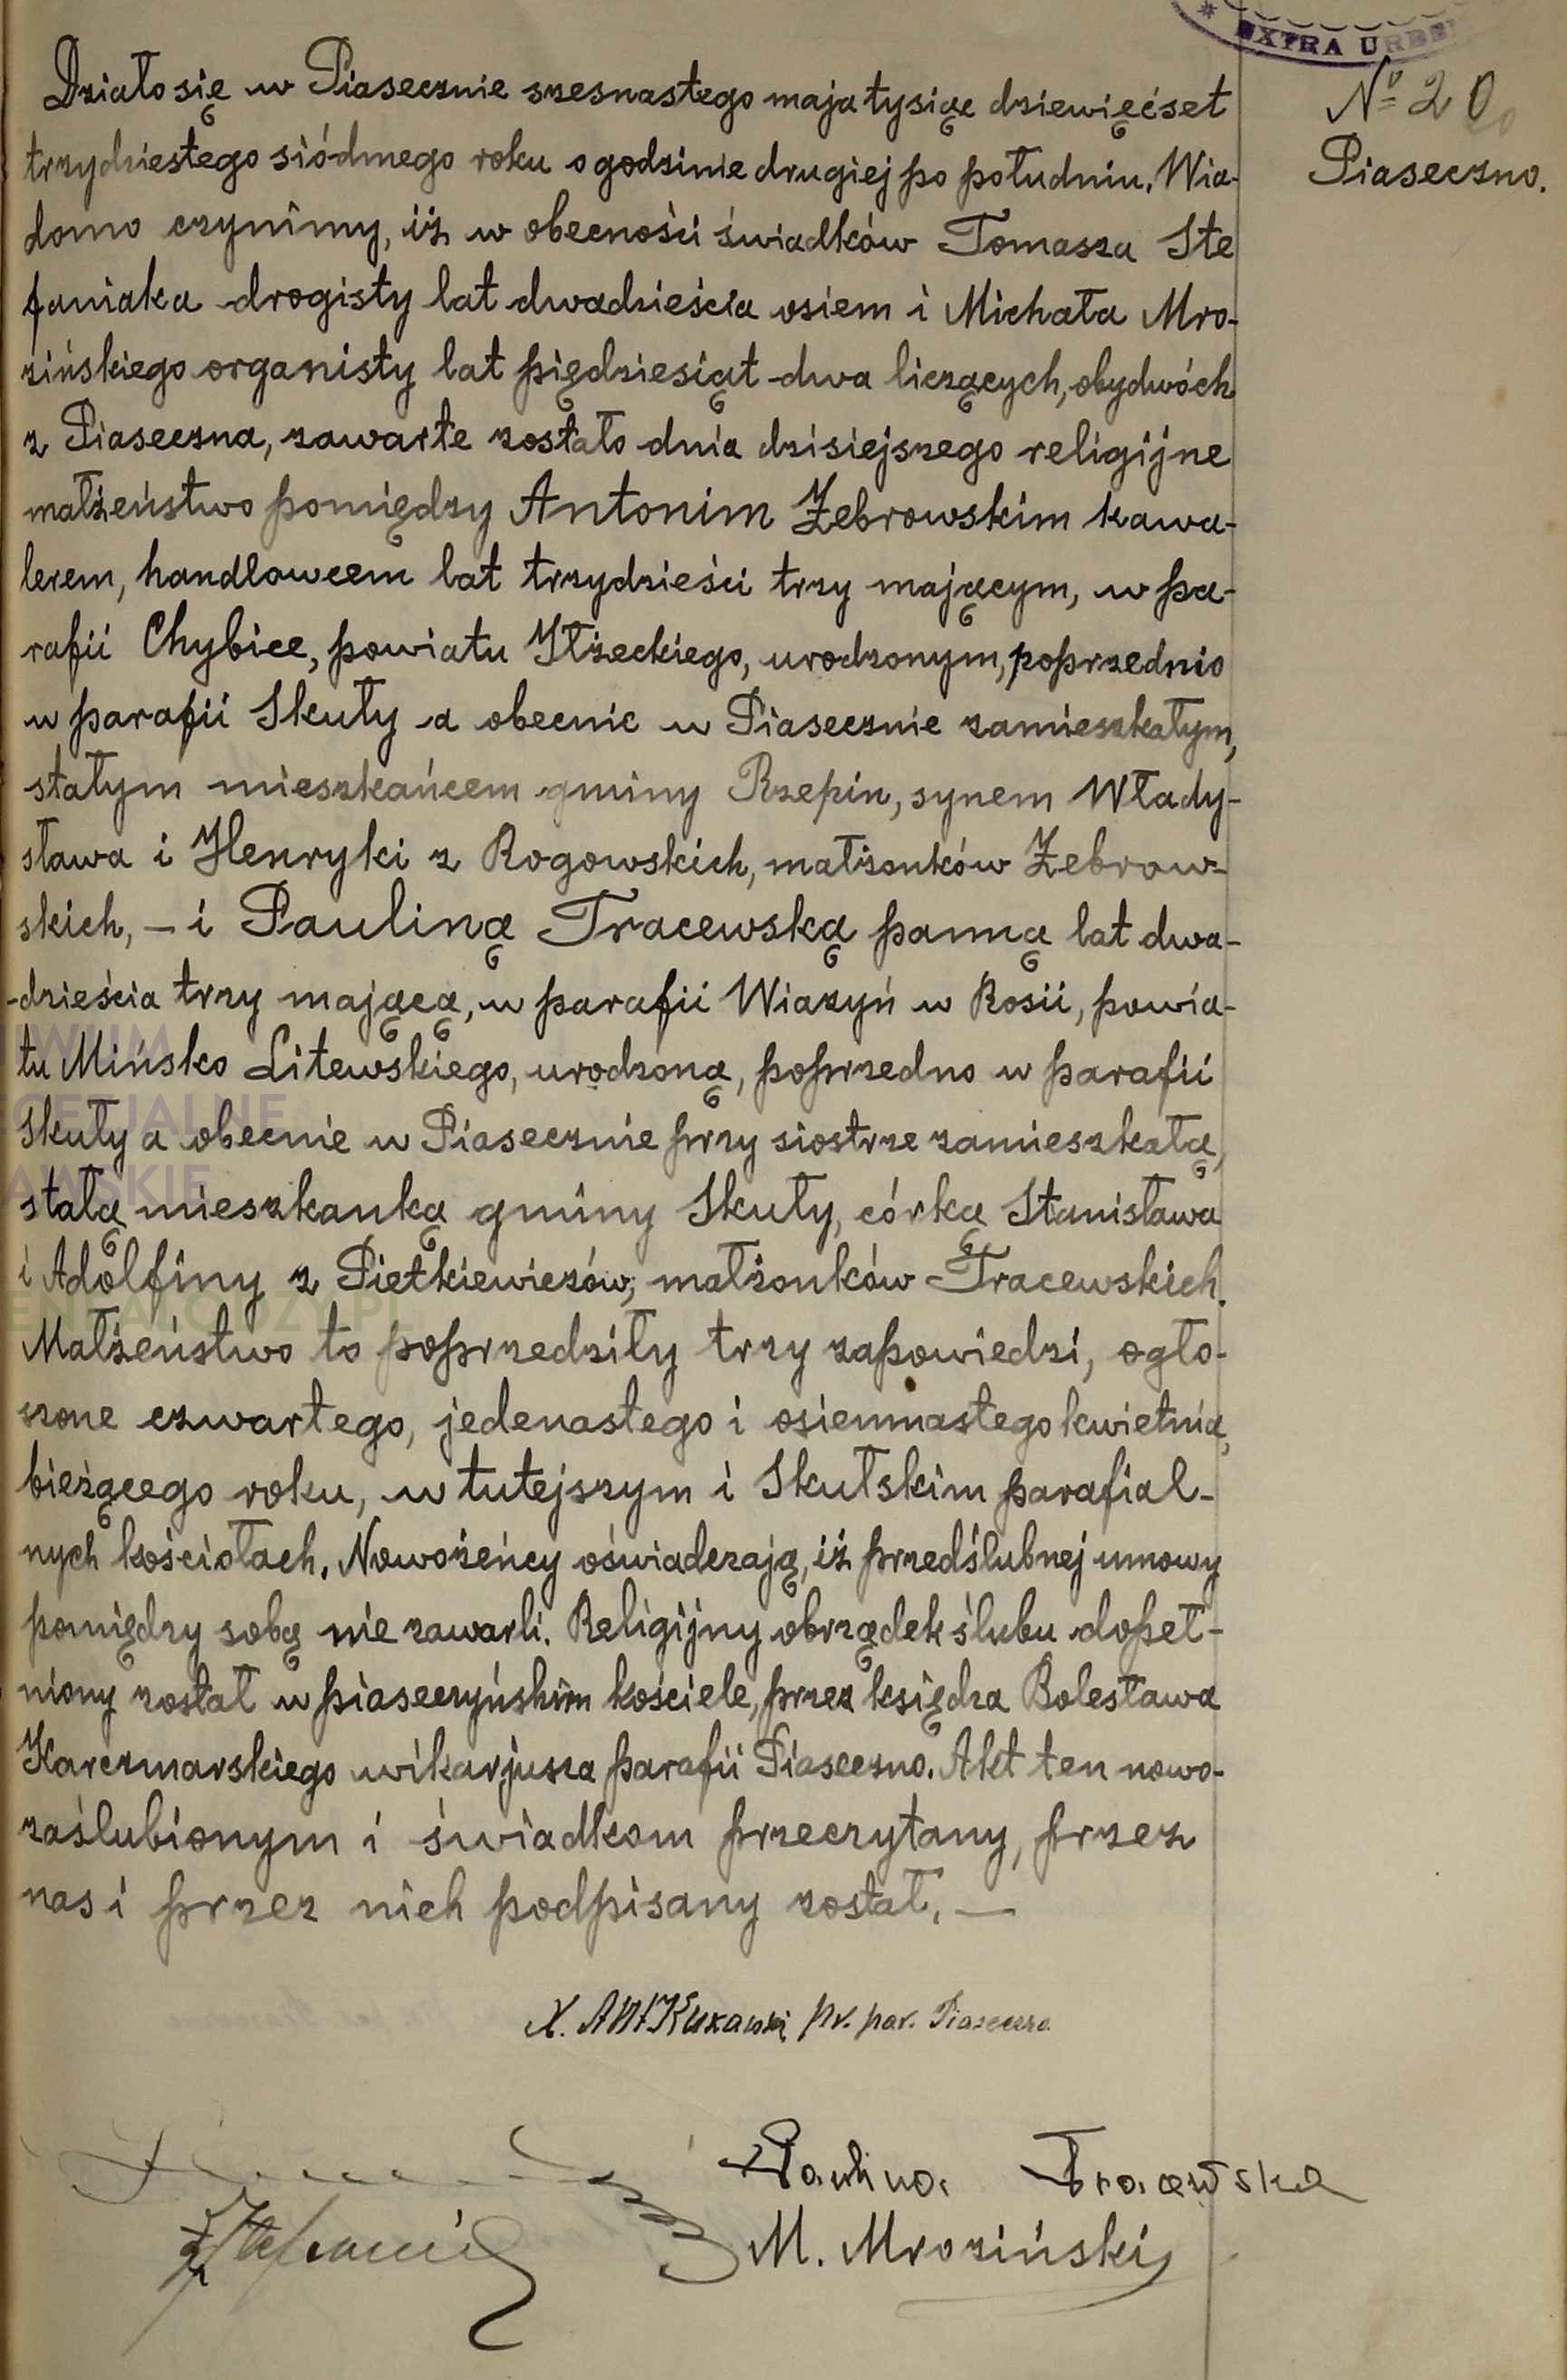 * EXTRA URBE
Nº 20
Piaseczno.
Działo się w Piasecznie szesnastego maja tysiąc dziewięćset
trzydziestego siódmego roku o godzinie drugiej po południu. Wia-
domo czynimy, iż w obecności świadków Tomasza Ste
faniaka drogisty lat dwadzieścia osiem i Michała Mro-
zińskiego organisty lat piędziesiąt dwa liczących, obydwóch
z Piaseczna, zawarte zostało dnia dzisiejszego religijne
małżeństwo pomiędzy Antonim Żebrowskim kawa-
lerem, handlowcem lat trzydzieści trzy mającym, w pa-
rafii Chybice, powiatu Iłżeckiego, urodzonym, poprzednio
w parafii Skuły a obecnie w Piasecznie zamieszkałym,
stałym mieszkańcem gminy Rzepin, synem Włady-
sława i Henryki z Rogowskich, małżonków Żebrow-
skich, – i Pauliną Tracewską panną lat dwa-
-dzieścia trzy mającą, w parafii Wiazyń w Rosii, powia-
tu Mińsko Litewskiego, urodzoną, poprzedno w parafii
Skuły a obecnie w Piasecznie przy siostrze zamieszkałą,
stałą mieszkanką gminy Skuły, córką Stanisława
i Adolfiny z Pietkiewiczów, małżonków Tracewskich.
Małżeństwo to poprzedziły trzy zapowiedzi, ogło-
szone czwartego, jedenastego i osiemnastego kwietnia,
bieżącego roku, w tutejszym i Skulskim parafial-
nych kościołach. Nowożeńcy oświadczają, iż przedślubnej umowy
pomiędzy sobą nie zawarli. Religijny obrządek ślubu dopeł-
niony został w piaseczyńskim kościele, przez księdza Bolesława
Karczmarskiego wikarjusza parafii Piaseczno. Akt ten nowo-
zaślubionym i świadkom przeczytany, przez
nas i przez nich podpisany został. —
X. Ant Kukawski pr. par. Piaseczno
Paulina Tracewska
Stefaniak
M. Mroziński